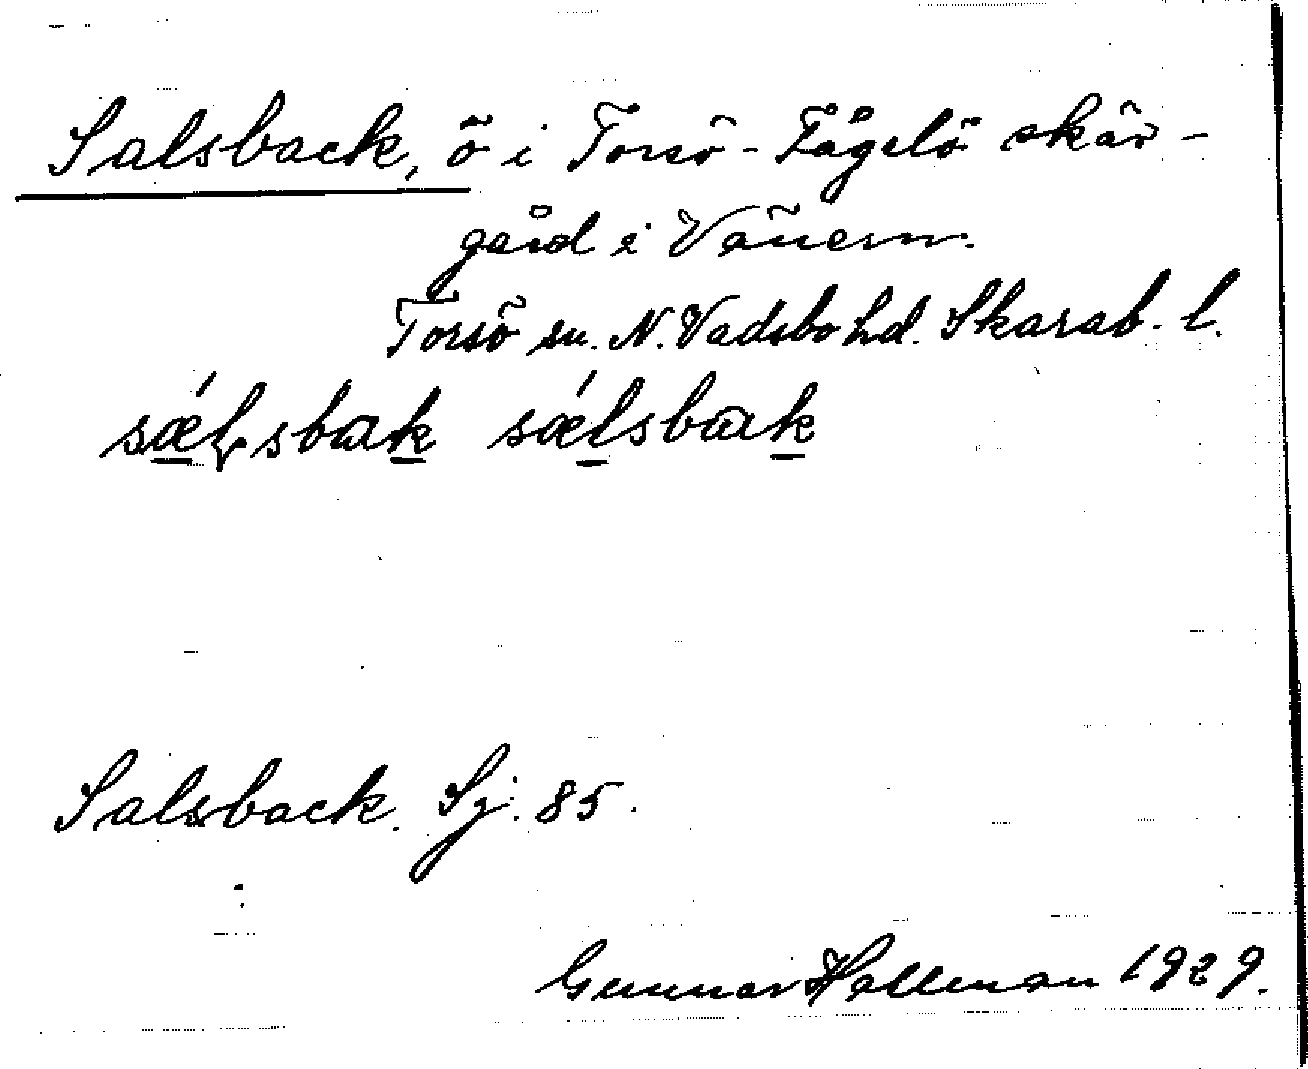 Salsback, ö i Torsö-Fågelö skär-
gård i Vänern.
Torsö sn. N. Vadsbo hd. Skarab. l.
sǽlsbak sǽlsbak
Salsback. Sj. 85.
Gunnar Hallman 1929.